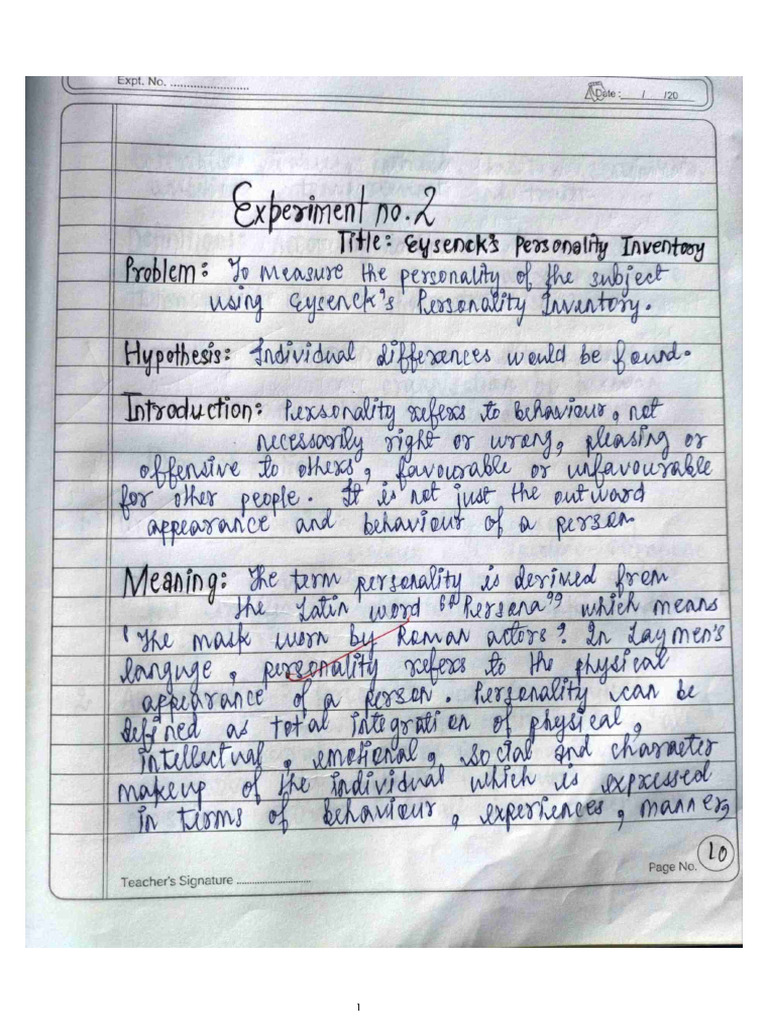 Expt. No. ..........................
Date : ____/____/20____
Experiment no. 2
Title: Eysenck's Personality Inventory
Problem: To measure the personality of the subject
using Eysenck's Personality Inventory.
Hypothesis: Individual differences would be found.
Introduction: Personality refers to behaviour, not
necessarily right or wrong, pleasing or
offensive to others, favourable or unfavourable
for other people. It is not just the outward
appearance and behaviour of a person
Meaning: The term personality is derived from
the Latin word "Persona" which means
'The mask worn by Roman actors'. In Laymen's
languge, personality refers to the physical
appearance of a person. Personality can be
defined as total integration of physical,
intellectual, emotional, social and character
makeup of the individual which is expressed
in terms of behaviour, experiences, manner,
Page No. 10
Teacher's Signature ..........................
1